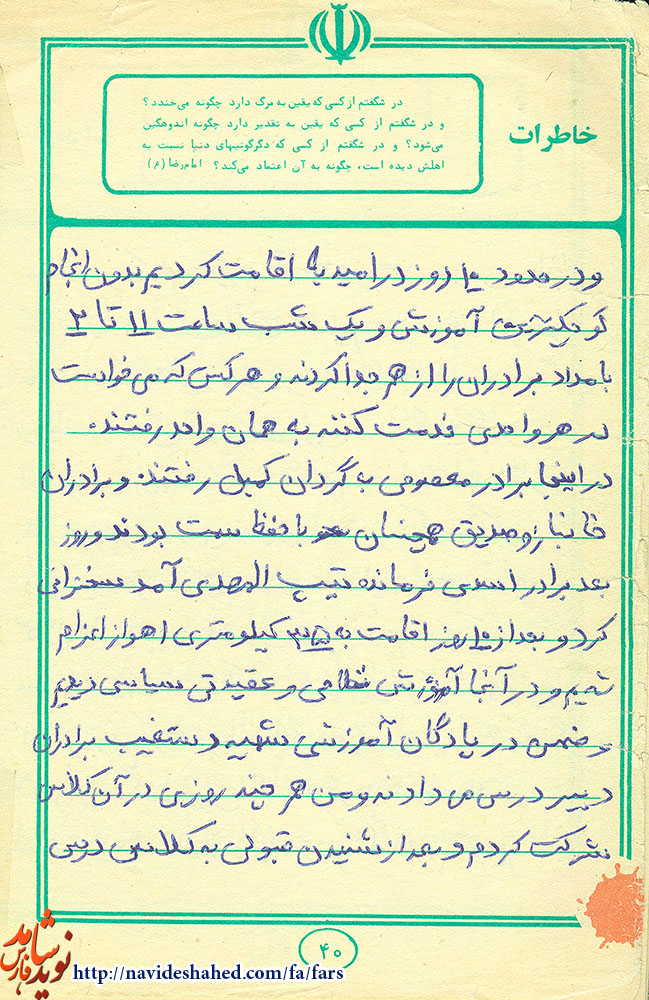 خاطرات
در شگفتم از کسی که یقین به مرگ دارد چگونه می‌خندد؟
و در شگفتم از کسی که یقین به تقدیر دارد چگونه اندوهگین
می‌شود؟ و در شگفتم از کسی که دگرگونیهای دنیا نسبت به
اهلش دیده است، چگونه به آن اعتماد می‌کند؟ امام رضا (ع)
و در حدود ۱۰ روز در امیدیه اقامت کردیم بدون انجام
کوچکترین آموزش و یک شب ساعت ۱۱ تا ۲
بامداد برادران را از هم جدا کردند و هر کس که می خواست
در هر واحدی خدمت کند به همان واحد رفتند.
در اینجا برادر معصومی به گردان کمیل رفتند و برادران
خانباز و صدیق همچنان با حفظ سمت بودند و روز
بعد برادر اسدی فرمانده تیپ المهدی آمد سخنرانی
کرد و بعد از ۱۰ روز اقامت به ۳۵ کیلومتری اهواز اعزام
شدیم و در آنجا آموزش نظامی و عقیدتی سیاسی دیدیم
و ضمن در پادگان آموزشی شهید دستغیب برادران
دبیر درس می دادند و من هم چند روزی در آن کلاس
شرکت کردم و بعد از شنیدن قبولی به کلاس درس
۴۰
نوید شاهد فارس
http://navideshahed.com/fa/fars